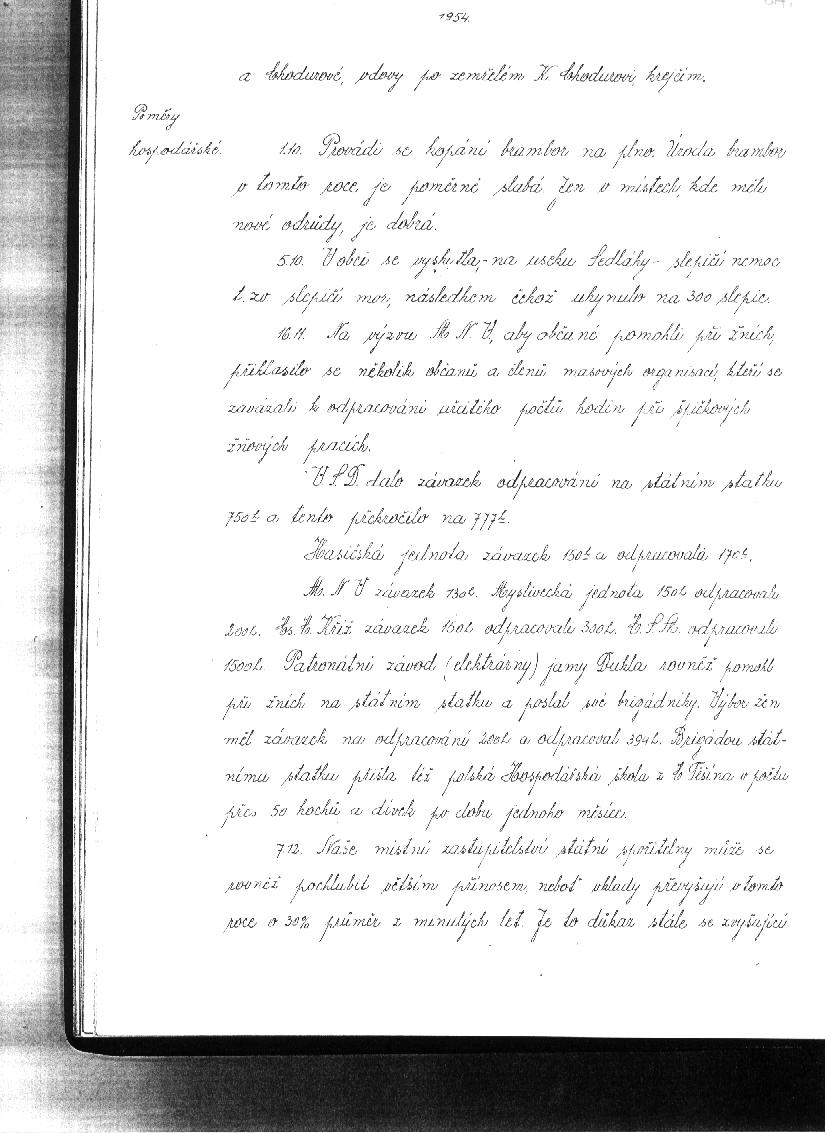 1954.
a Chodurové, vdovy po zemřelém K. Chodurovi, krejčím.
Poměry
hospodářské.
1.10. Provádí se kopání brambor na plno. Úroda brambor
v tomto roce je poměrně slabá. Jen v místech, kde měli
nové odrůdy, je dobrá.
5.10. V obci se vyskytla, - na úseku Sedláky - slepičí nemoc
t. zv. slepičí mor, následkem čehož uhynulo na 300 slepic.
16.11. Na výzvu M. N. V., aby občané pomohli při žních,
přihlásilo se několik občanů a členů masových organisací, kteří se
zavázali k odpracování určitého počtů hodin při špičkových
žňových pracích.
V. S. D. dalo závazek odpracování na státním statku
750 h a tento překročilo na 777 h.
Hasičská jednota závazek 150 h a odpracovala 170 h.
M. N. V. závazek 130 h. Myslivecká jednota 150 h odpracovali
200 h. Čs. Č. Kříž závazek 150 h odpracovali 300 h. Č. S. M. odpracovali
1500 h. Patronátní závod (elektrárny) jamy Dukla rovněž pomohl
při žních na státním statku a poslal své brigádníky. Výbor žen
měl závazek na odpracování 200 h a odpracoval 394 h. Brigádou stát-
nímu statku přišla též polská Hospodářská škola z Č. Těšína v počtu
přes 50 hochů a dívek po dobu jednoho měsíce.
7.12. Naše místní zastupitelství státní spořitelny může se
rovněž pochlubit větším přínosem, neboť vklady převyšují v tomto
roce o 30% průměr z minulých let. Je to důkaz stále se zvyšující